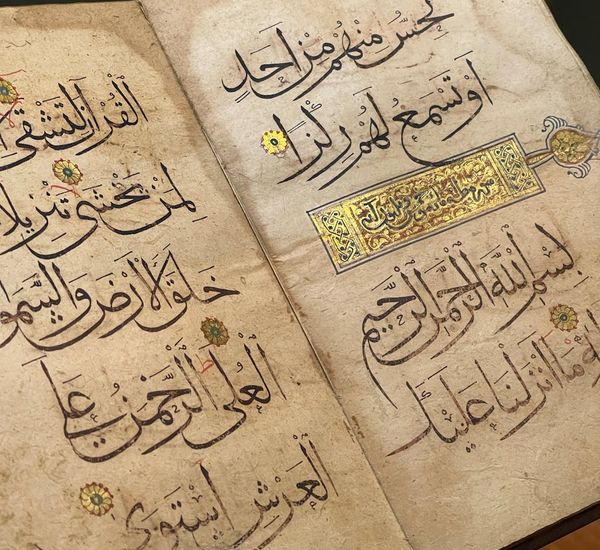 تُحِسُّ مِنْهُمْ مِنْ اَحَدٍ
اَوْ تَسْمَعُ لَهُمْ رِكْزًا
بِسْمِ اللَّهِ الرَّحْمٰنِ الرَّحِيمِ
مَا اَنْزَلْنَا عَلَيْكَ
الْقُرْاٰنَ لِتَشْقٰى
لِمَنْ يَخْشٰى تَنْزِيلًا
خَلَقَ الْاَرْضَ وَالسَّمٰوَ
الْعُلٰى الرَّحْمٰنُ عَلَى
الْعَرْشِ اسْتَوٰى